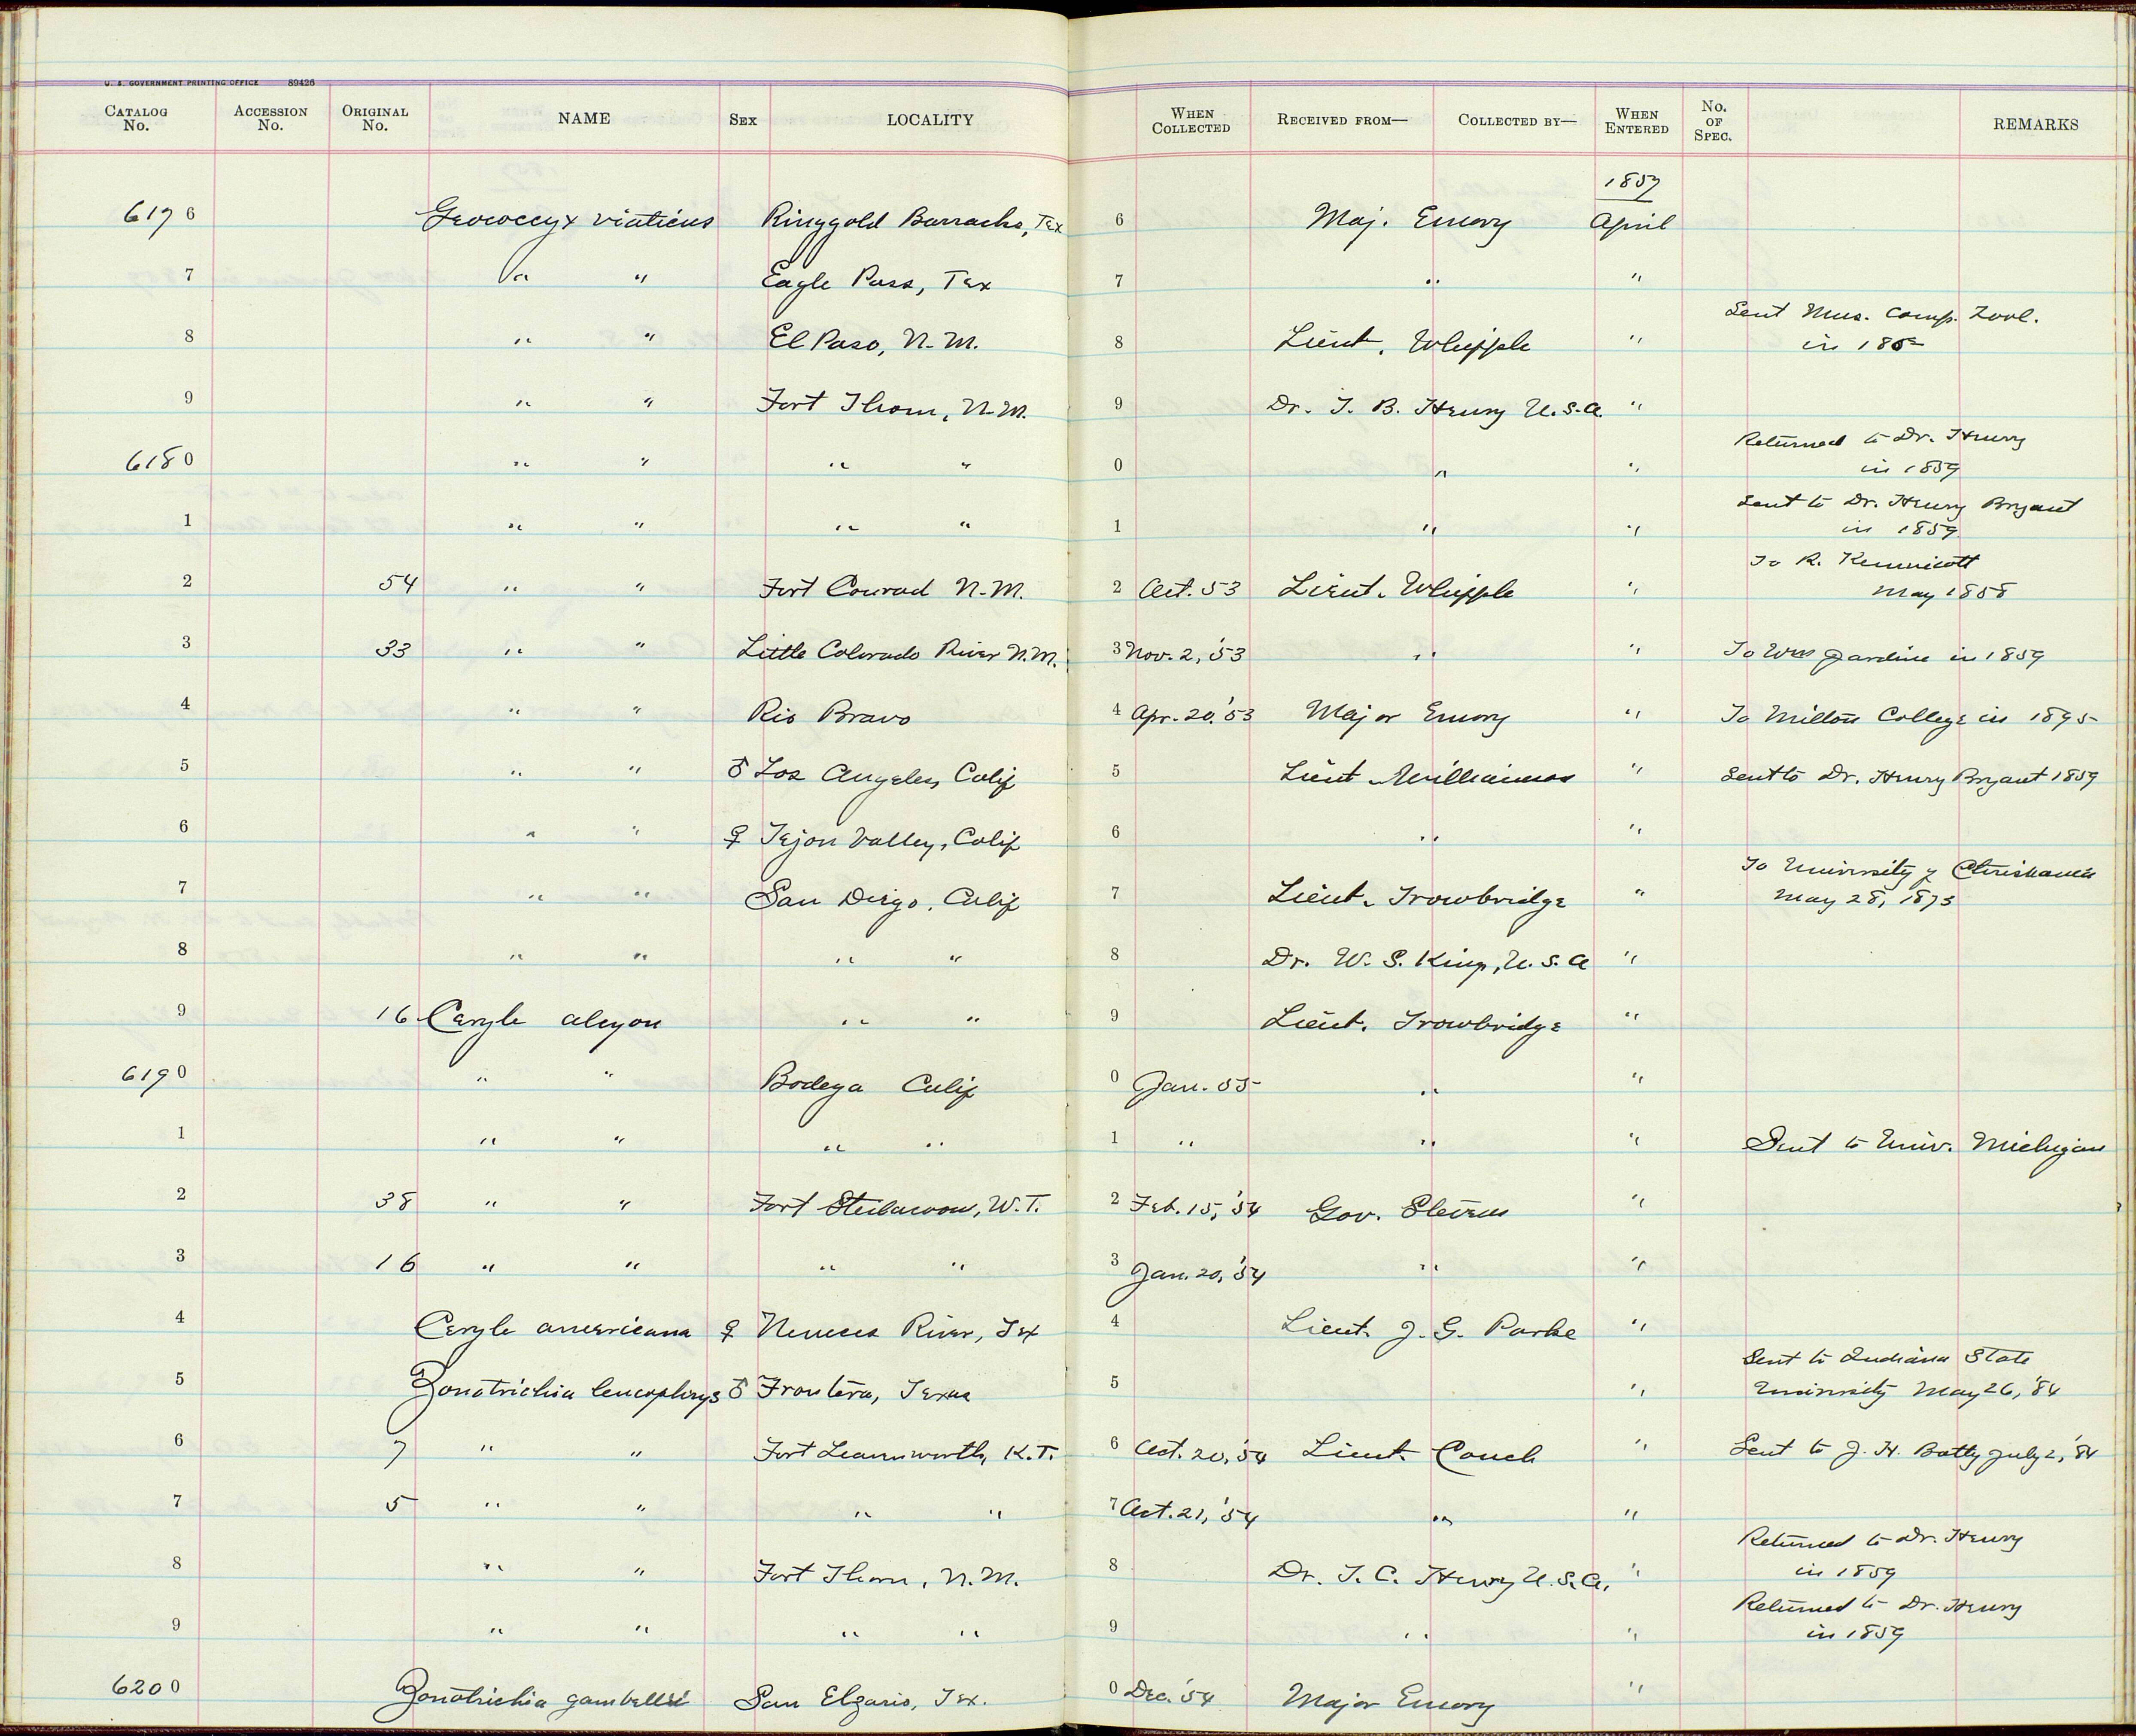 U. S. GOVERNMENT PRINTING OFFICE 89426
CATALOG No. ACCESSION No. ORIGINAL No. NAME SEX LOCALITY WHEN COLLECTED RECEIVED FROM— COLLECTED BY— WHEN ENTERED No. OF SPEC. REMARKS
1857
6176 Geococcyx viaticus Ringgold Barracks, Tex 6 Maj. Emory April
7 " " Eagle Pass, Tex 7 " "
Sent Mus. Comp. Zool.
8 " " El Paso, N.M. 8 Lieut. Whipple " in
9 " " Fort Thorn, N.M. 9 Dr. T. B. Henry U.S.A. "
Returned to Dr. Henry
6180 " " " " 0 " " in 1859
Sent to Dr. Henry Bryant
1 " " " " 1 " " in 1859
To R. Kennicott
2 54 " " Fort Conrad N.M. 2 Oct. 53 Lieut. Whipple " May 1858
3 33 " " Little Colorado River N.M. 3 Nov. 2, '53 " " To Wm Jardine in 1859
4 " " Rio Bravo 4 Apr. 20, '53 Major Emory " To Milton College in 1895
5 " " ♂ Los Angeles, Calif 5 Lieut Williamson " Sent to Dr. Henry Bryant 1859
6 " " ♀ Tejon Valley, Calif 6 " "
To University of Christiania
7 " " San Diego, Calif 7 Lieut. Trowbridge " May 28, 1873
8 " " " " 8 Dr. W. S. King, U.S.A "
9 16 Ceryle alcyon " " 9 Lieut. Trowbridge "
6190 " " Bodega Calif 0 Jan. 55 " "
1 " " " " 1 " " " Sent to Univ. Michigan
2 38 " " Fort Steilacoom, W.T. 2 Feb. 15, '54 Gov. Stevens "
3 16 " " " " 3 Jan. 20, '54 " "
4 Ceryle americana ♀ Nueces River, Tex 4 Lieut. J. G. Parke "
Sent to Indiana State
5 Zonotrichia leucophrys ♂ Frontera, Texas 5 " University May 26, '84
6 7 " " Fort Leavenworth, K.T. 6 Oct. 20, '54 Lieut. Couch " Sent to J. H. Batty July 2, '84
7 5 " " " " 7 Oct. 21, '54 " "
Returned to Dr. Henry
8 " " Fort Thorn, N.M. 8 Dr. T. C. Henry U.S.A. " in 1859
Returned to Dr. Henry
9 " " " " 9 " " in 1859
6200 Zonotrichia gambellii San Elzario, Tex. 0 Dec. '54 Major Emory "